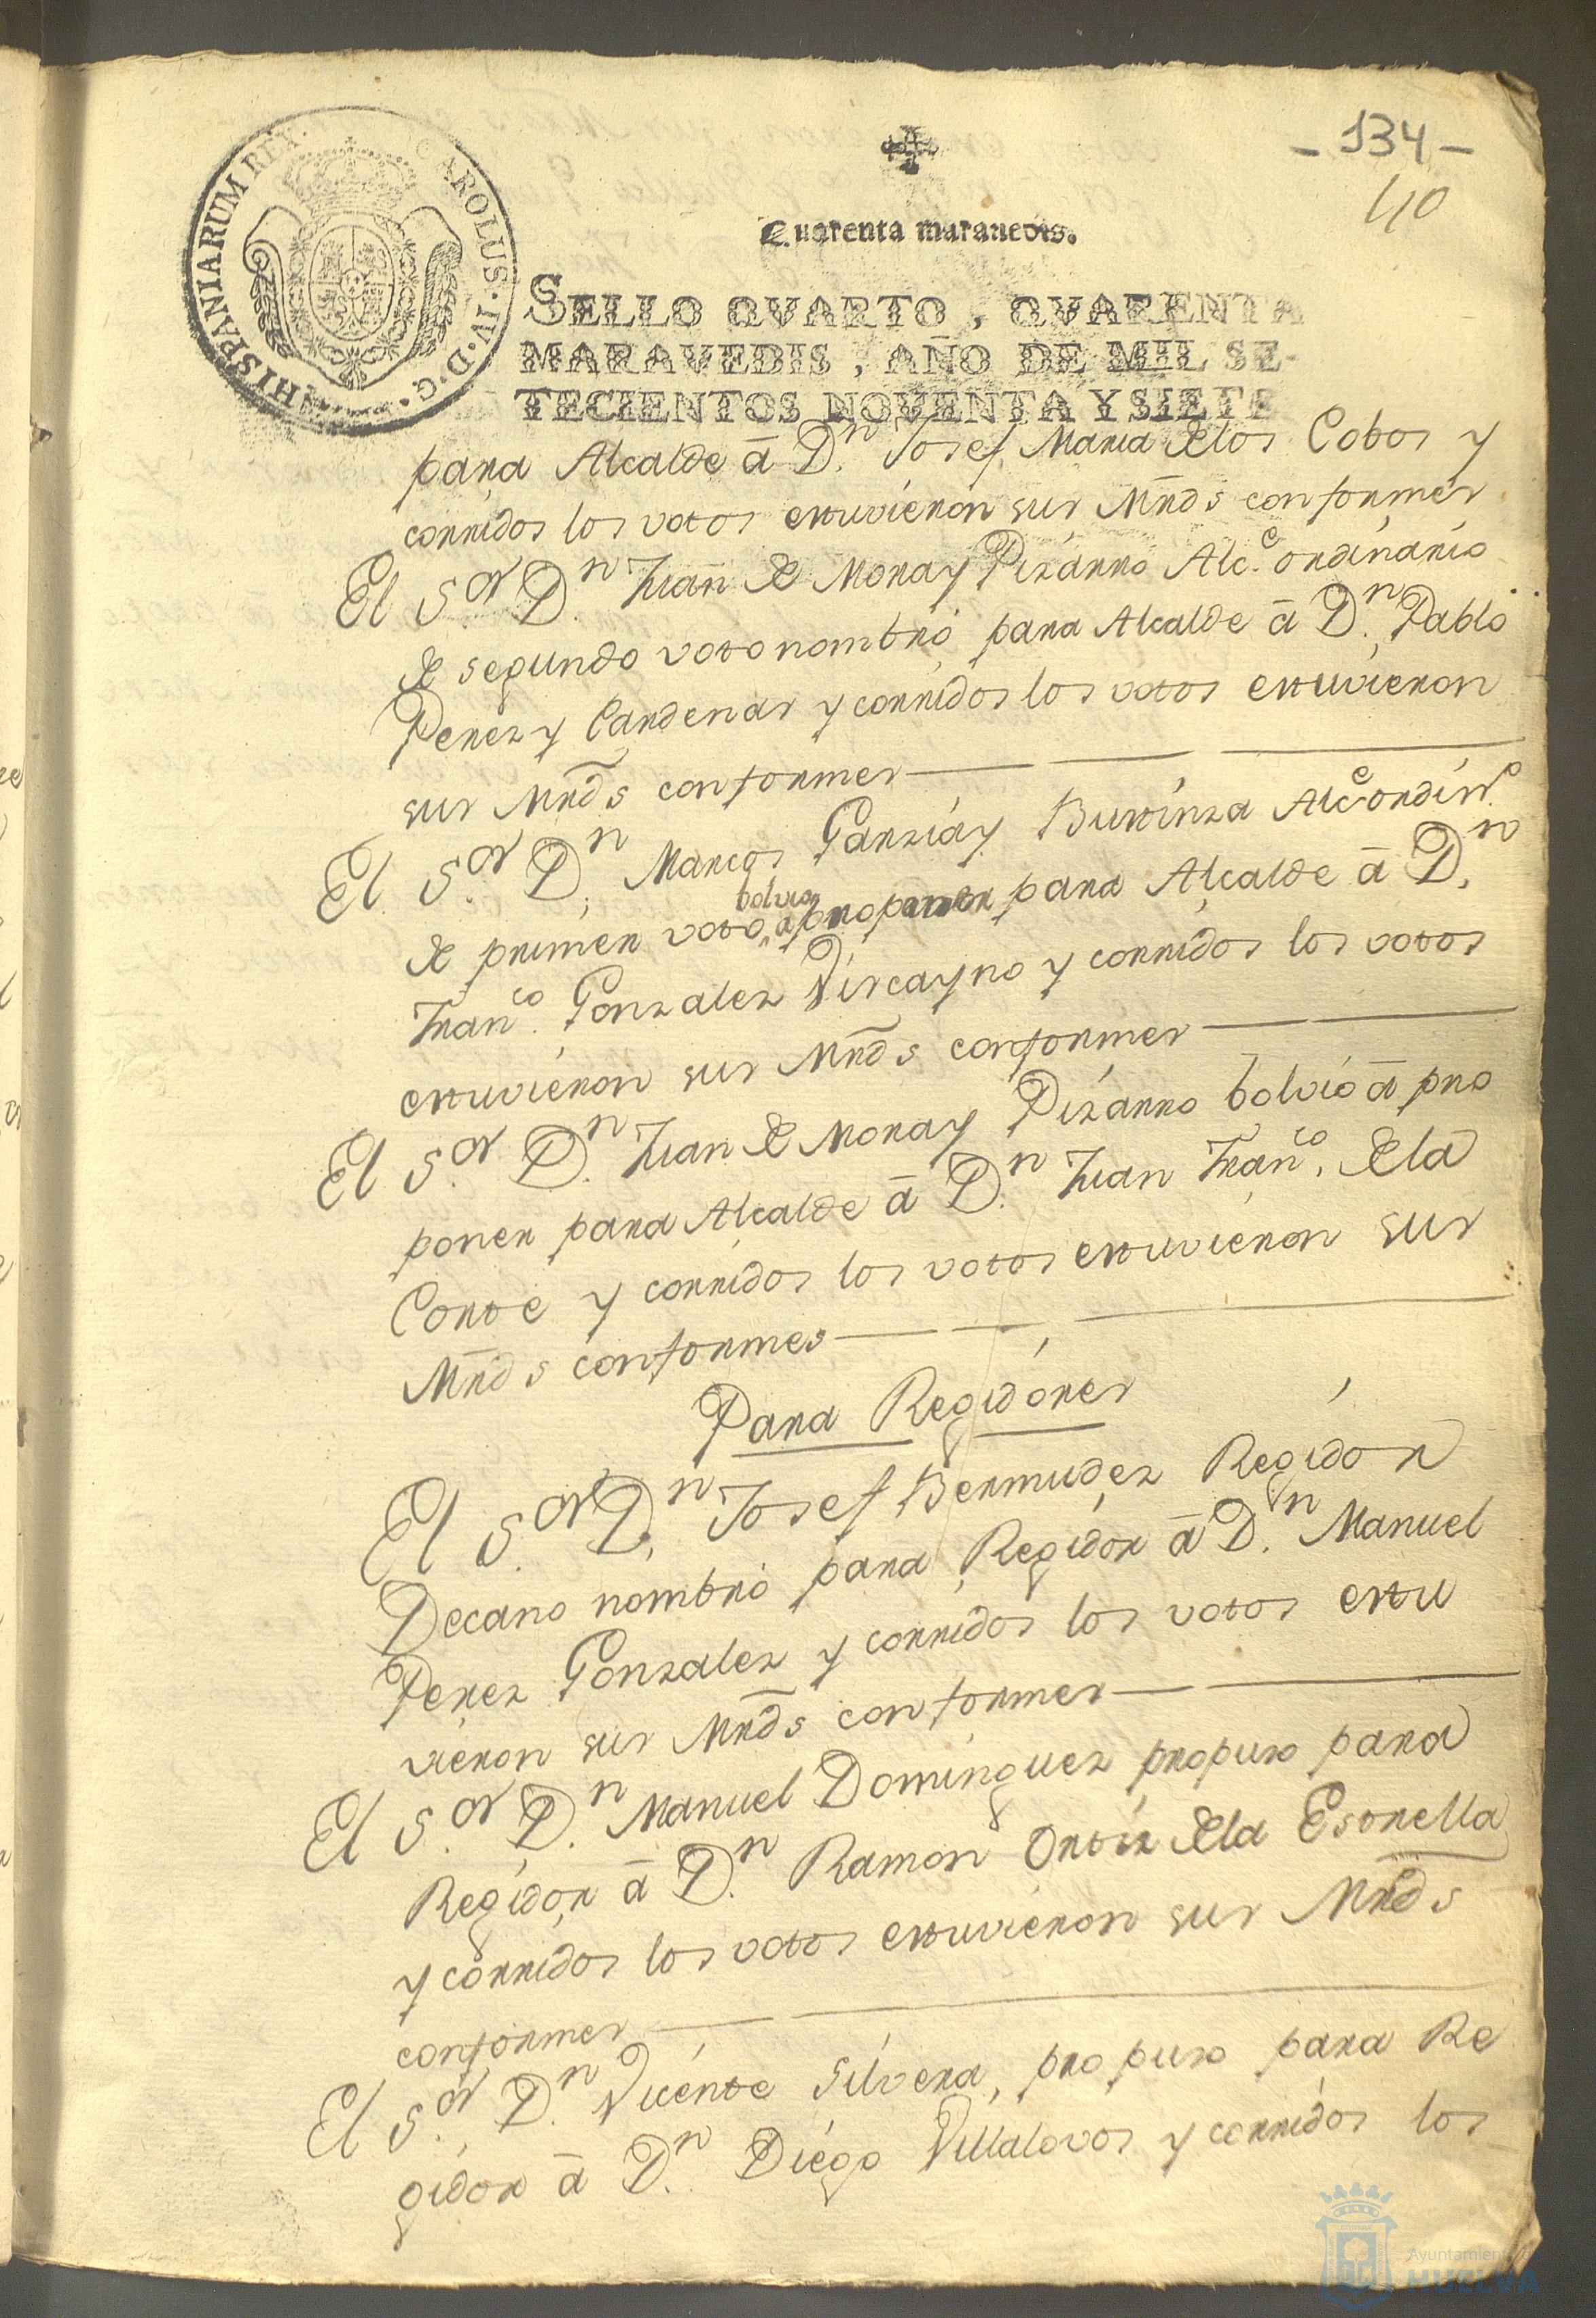 - 134 -
40
Quarenta maravedis.
HISPANIARUM REX. CAROLUS. IV. D. G.
SELLO QVARTO, QVARENTA
MARAVEDIS, AÑO DE MIL SE-
TECIENTOS NOVENTA Y SIETE
para Alcalde â D.n Josef Maria de los Cobos y
corridos los votos estuvieron sus Mrds conformes
El S.or D.n Juan de Mora y Pizarro Alc.e ordinario
de segundo voto nombró para Alcalde â D.n Pablo
Perez y Cardenas y corridos los votos estuvieron
sus Mrds conformes
El S.or D.n Marcos Garzia y Bustinza Alc.e ordin.o
bolvio
de primer voto a proponer para Alcalde â D.n
Fran.co Gonzalez Viscayno y corridos los votos
estuvieron sus Mrds conformes
El S.or D.n Juan de Mora y Pizarro bolvio â pro
poner para Alcalde â D.n Juan Fran.co de la
Corte y corridos los votos estuvieron sus
Mrds conformes
Para Regidores
El S.or D.n Josef Bermudez Regidor
Decano nombró para Regidor â D.n Manuel
Perez Gonzalez y corridos los votos estu
vieron sus Mrds conformes
El S.or D.n Manuel Dominguez propuso para
Regidor â D.n Ramon Ortiz de la Estrella
y corridos los votos estuvieron sus Mrds
conformes
El S.or D.n Vicente Silvera, propuso para Re
gidor â D.n Diego Villalovos y corridos los
Ayuntamiento
HUELVA